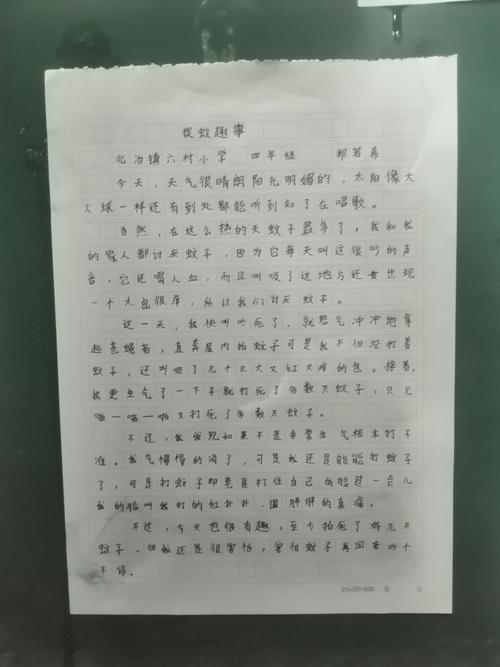 捉蚊趣事
北冶镇六村小学 四年级 郑茗希
今天,天气很晴朗阳光明媚的,太阳像大
火球一样还有到处都能听到知了在唱歌。
当然,在这么热的天蚊子最多了,我和我
的家人都讨厌蚊子,因为它每天叫这很吵的声
音,它还喝人血,而且叫吸了这地方还会出现
一个大包很痒,所以我们讨厌蚊子。
这一天,我快叫吵死了,就怒气冲冲地拿
起苍蝇拍,直奔屋内拍蚊子可是我不但没打着
蚊子,还叫吸了几个又大又红又痒的包。接着,
我更生气了一下子就打死了多数只蚊子,只见
啪一啪一啪又打死了多数只蚊子。
不过,我发现如果不是非常生气根本打不
准。我气慢慢的消了,可是我还是能能打蚊子
了,可是打蚊子却老是打住自己的脸过一会儿
我的脸叫我打的红扑扑,圆胖胖的真痛。
不过,今天也很有趣,至少拍死了好几只
蚊子,但我还是很害怕,害怕蚊子再回来吵个
不停。
20x20=400 第 页